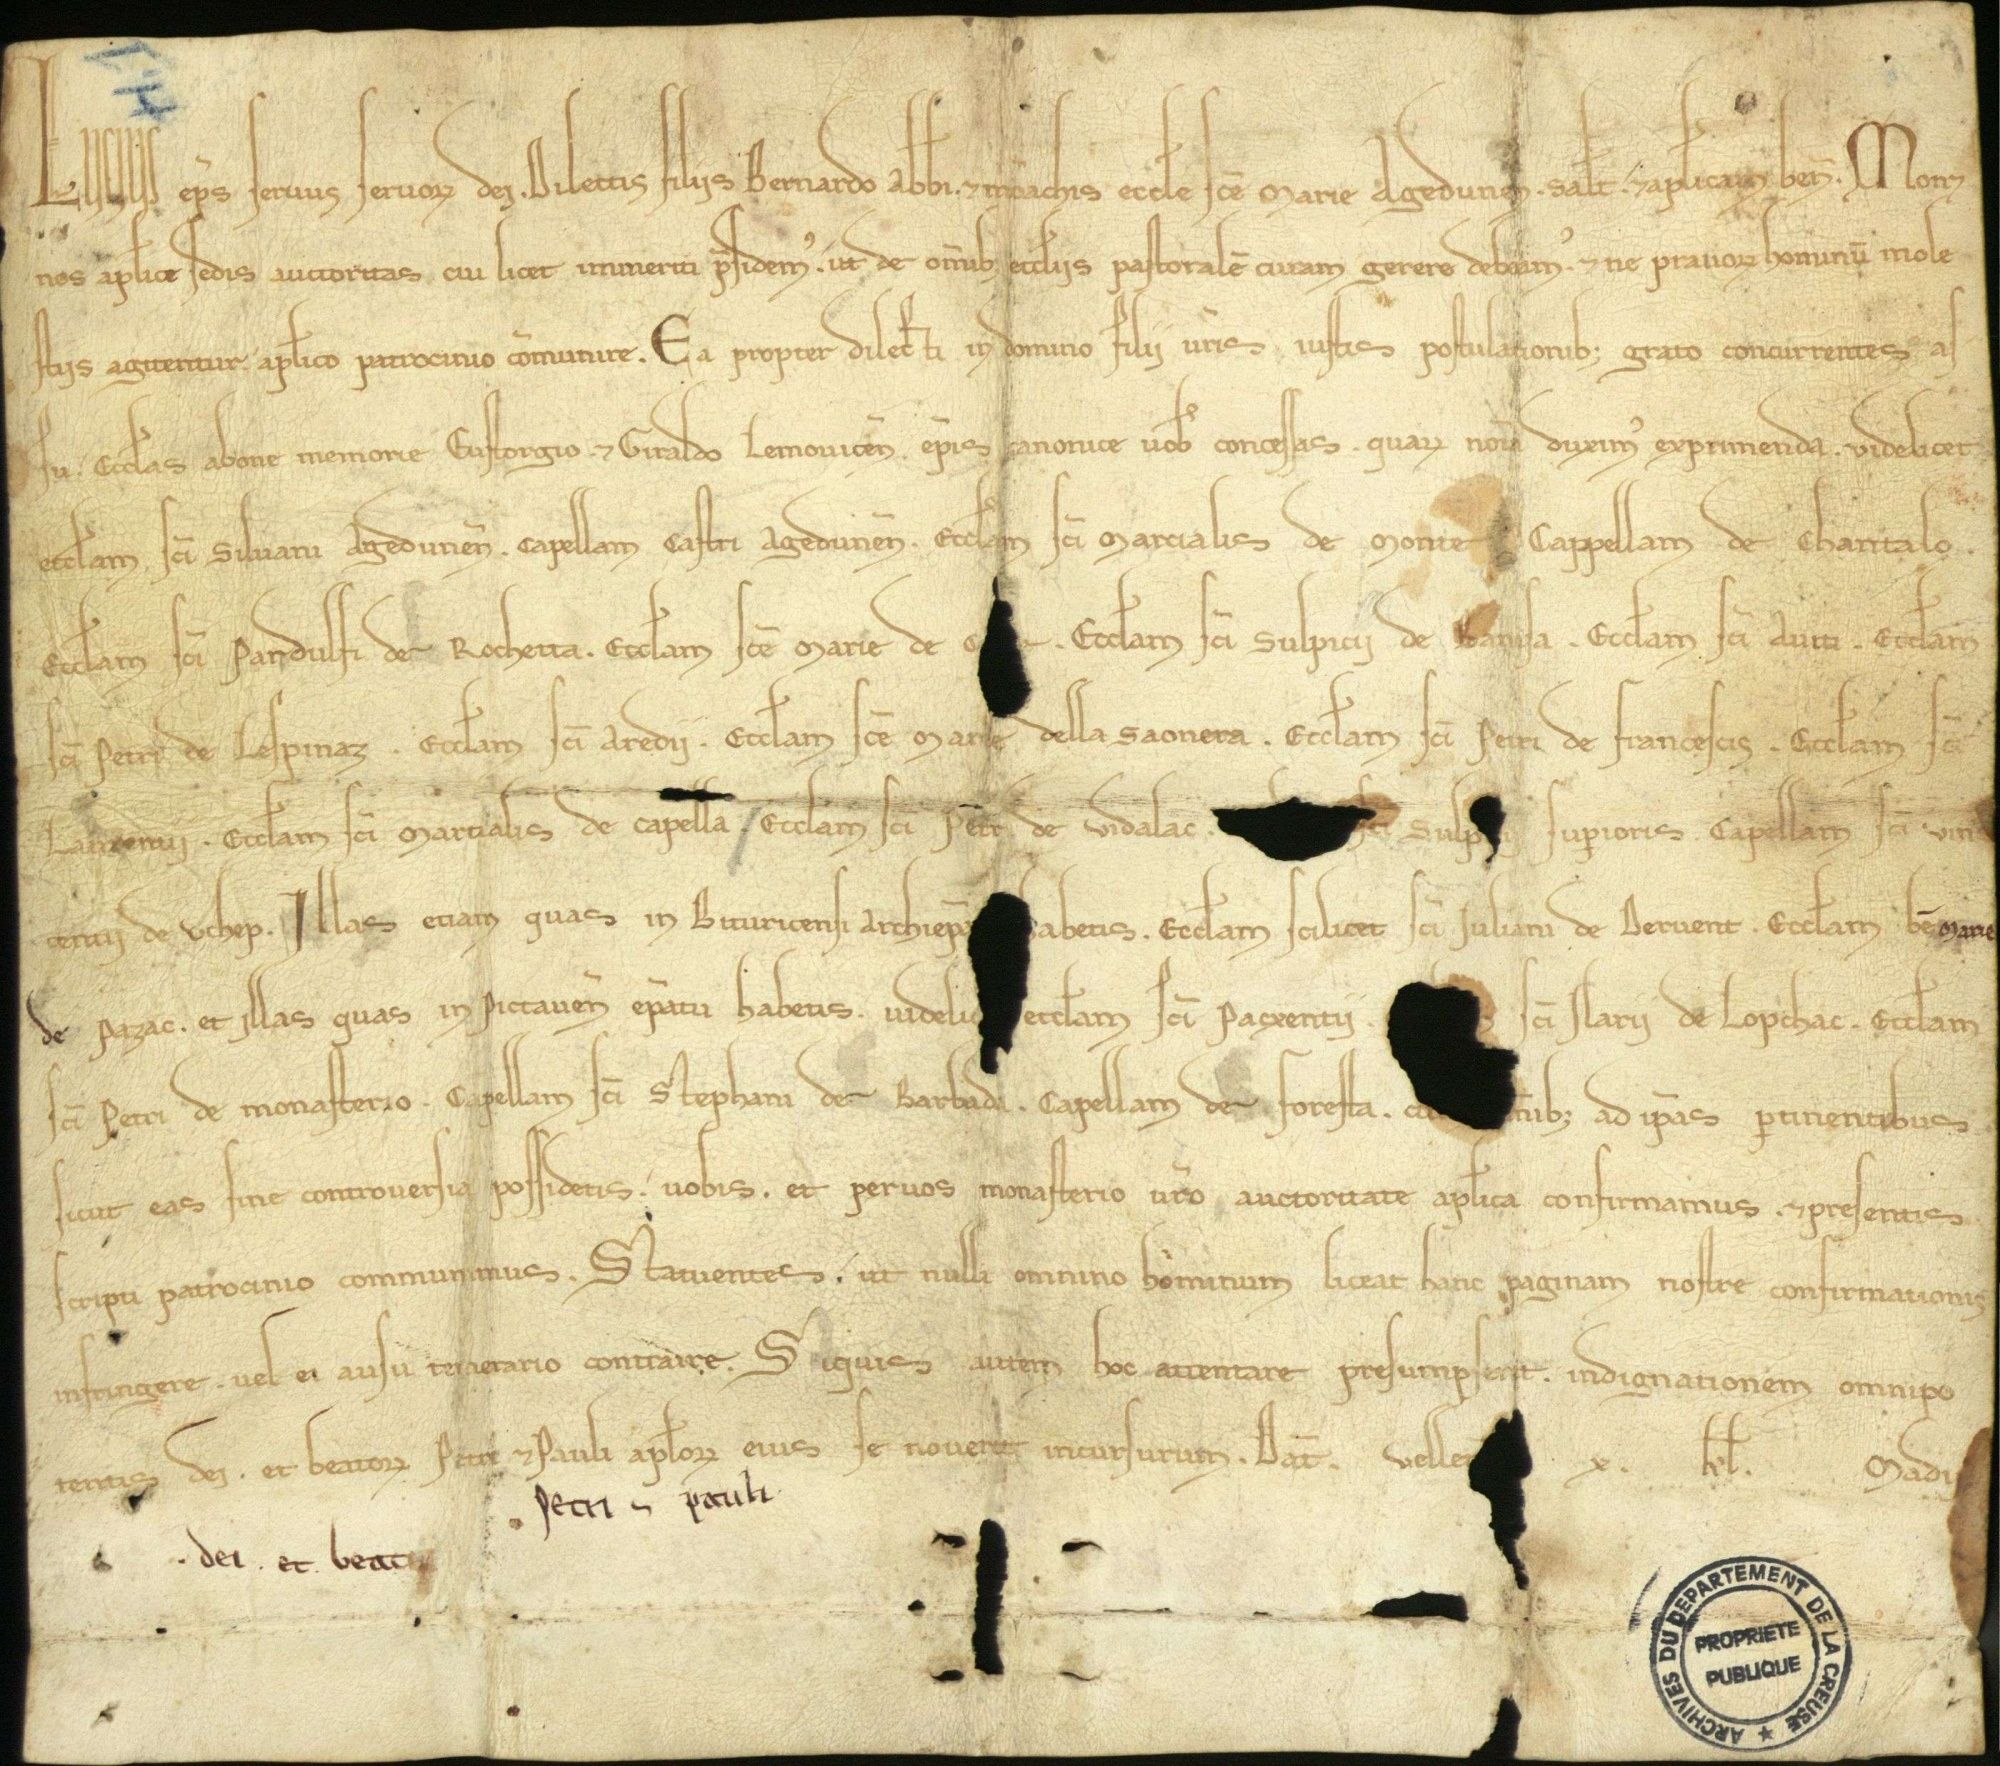 Lucius ep̄s seruus seruoꝝ dei. Dilectis filiis Bernardo Abbi. ⁊ moāchis eccłe sc̄e Marie Agedunen̄. sałt. ⁊ apłicam ben̄. Monꝫ
nos apłice sedis auctoritas cui licet immeriti p̄sidemꝰ. ut de om̄ib; eccłiis pastoralē curam gerere debeamꝰ. ⁊ ne prauoꝝ hominū mole
stiis agitentur apłico patrocinio cōmunire. Ea propter dilecti in domino filii ur̄is iustis postulationib; grato concurrentes as
su. Eccłas a bone memorie Eustorgio ⁊ Giraldo Lemouicen̄. ep̄is canonice uob concessas. quaꝝ noīa duximꝰ exprimenda. videlicet
eccłam sc̄i Siluani Agedunen̄. Capellam Castri Agedunen̄. Eccłam sc̄i Marcialis de Monte Cappellam de Chantalo.
Eccłam sc̄i Pandulfi de Rochetta. Eccłam sc̄e Marie de . Eccłam sc̄i Sulpicii de . Eccłam sc̄i Auiti. Eccłam
sc̄i Petri de Lespinaz. Eccłam sc̄i Aredii. Eccłam sc̄e Marie della Saonera. Eccłam sc̄i Petri de francescis. Eccłam sc̄i
Laurentii. Eccłam sc̄i Martialis de capella. Eccłam sc̄i Petri de Vidalac. sc̄i Sulp superioris. Capellam sc̄i Vin
centii de Vchep. Illas etiam quas in Bituricensi Archiep̄a abetis. Eccłam scilicet sc̄i Juliani de Beruent. Eccłam be᷒ Marie
de Pazac. et illas quas in Pictauen̄ ep̄atu habetis. uideli eccłam sc̄i Pacxentii. sc̄i Ilarii de Lopchac. Eccłam
sc̄i Petri de monasterio. Capellam sc̄i Stephani de Barbadi. Capellam de foresta. c m̄ib; ad ip̄as ꝑtinentibus
sicut eas sine controuersia possidetis. uobis. et per uos monasterio ur̄o auctoritate apłica confirmamus. ⁊ presentis
scripti patrocinio communimus. Statuentes. ut nulli omnino hominum liceat hanc paginam nostre confirmationis
infringere. uel ei ausu temerario contraire. Siquis autem hoc attentare presumpserit. indignationem omnipo
tentis dei. et beatoꝝ Petri ⁊ Pauli apłoꝝ eius se nouerit incursurum. Dat̄. Velle x. kł. Madii
Petri ⁊ pauli
. dei . et beat
ARCHIVES DU DEPARTEMENT DE LA CREUSE
PROPRIETE
PUBLIQUE